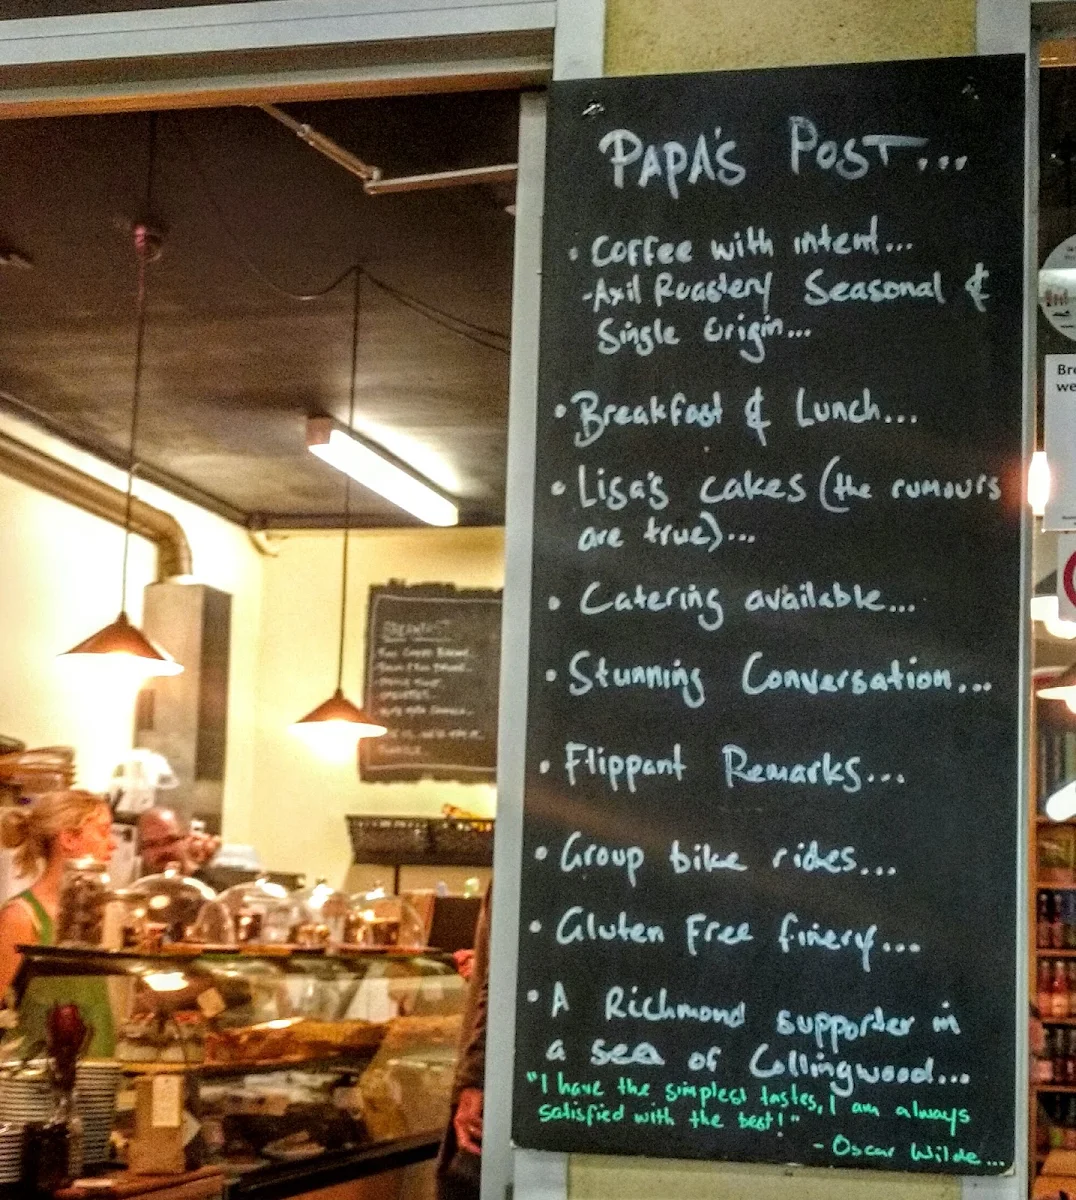 PAPA'S POST...
• Coffee with intent...
-Axil Roastery Seasonal &
Single Origin...
• Breakfast & Lunch...
• Lisa's cakes (the rumours
are true)...
• Catering available...
• Stunning Conversation...
• Flippant Remarks...
• Group bike rides...
• Gluten Free finery...
• A Richmond supporter in
a sea of Collingwood...
"I have the simplest tastes, I am always
satisfied with the best!"
- Oscar Wilde...
BREAKFAST
Bre
we